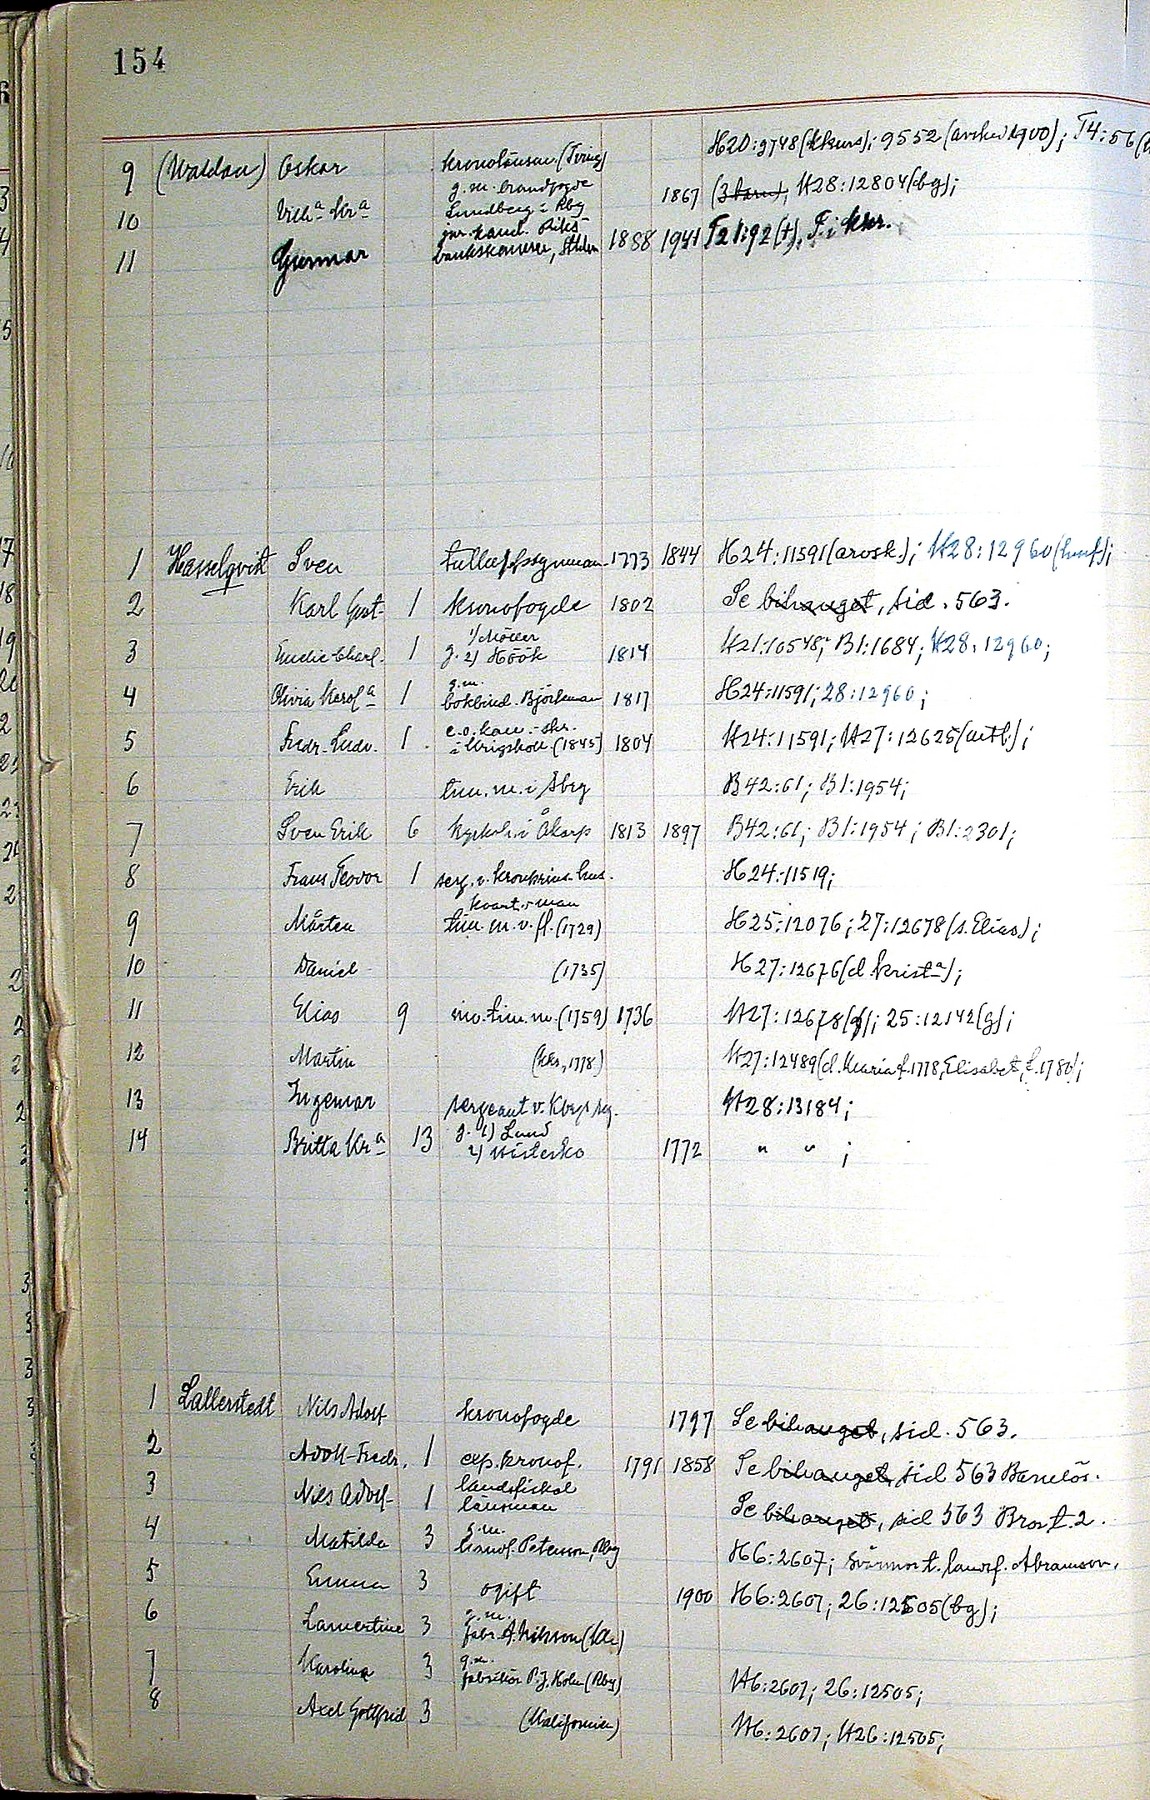 154
9 (Waldau) Oskar kronolänsm. (Tving) H20:9748 (kkurs); 9552 (avsked 1900); T4:56
10 Vilh.a Kr.a g.m. brandfogde Lundberg i Rby 1867 (3 barn), H28:12804 (bg);
11 Gunnar jur. kand. Riks- bankskamrer, Sthlm 1888 1941 T21:92 (†), F. i khr.
1 Hasselqvist Sven 1773 1844 H24:11591 (avsk.); H28:12960
2 Karl Gust. 1 kronofogde 1802 Se bihanget, sid. 563.
3 Emelie Charl. 1 g. 1) Möller 2) Höök 1814 H21:10548; B1:1684; H28:12960;
4 Olivia Karol.a 1 g.m. bokbind. Björkman 1817 H24:11591; 28:12960;
5 Fredr. Ludv. 1 e.o. kan.-skr. i krigskoll. (1845) 1804 H24:11591; H27:12625 (utb);
6 Erik tim. m. i Sbg B42:61; B1:1954;
7 Sven Erik 6 kyrkoh. i Åkarp 1813 1897 B42:61; B1:1954; B1:2301;
8 Frans Teodor 1 serg. v. kronprins. hus. H24:11519;
9 Mårten kvart.man tim. m. v. fl. (1729) H25:12076; 27:12678 (s. Elias);
10 Daniel (1735) H27:12676 (d. Krist.a);
11 Elias 9 mo. tim. m. (1759) 1736 H27:12678 25:12142 (g);
12 Martin 1778) H27:12489 (d. Maria f. 1778, Elisabet, f. 1780);
13 Ingemar sergeant v. Kbgs reg. H28:13184;
14 Britta Kr.a 13 g. 1) Lund 2) 1772 " " ;
1 Lallerstedt Nils Adolf kronofogde 1797 Se bihanget, sid. 563.
2 Adolf Fredr. 1 exp. kronof. 1791 1858 Se bihanget, sid 563
3 Nils Adolf 1 landsfiskal länsman Se bihanget, sid 563 Bror t. 2.
4 Matilda 3 g.m. kronof. Peterson, Rby H6:2607; svärmor t. landsf. Abramson.
5 Emma 3 ogift 1900 H6:2607; 26:12505 (bg);
6 Lamertine 3 g.m. fabr. A. Nilsson
7 Karolina 3 g.m. fabrikör P.J. Holm (Rby) H6:2607; 26:12505;
8 Axel Gottfrid 3 (Kalifornien) H6:2607; H26:12505;